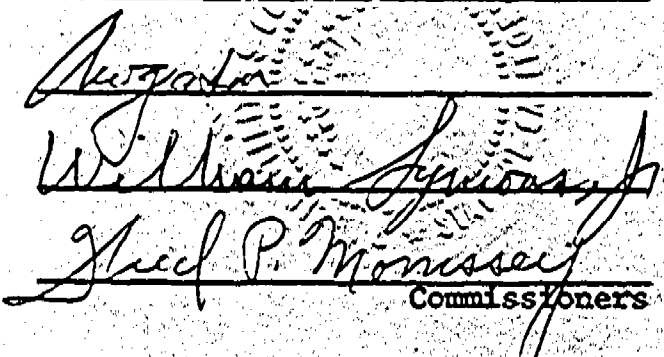 William Symons, Jr
Fred P. Morrissey
Commissioners